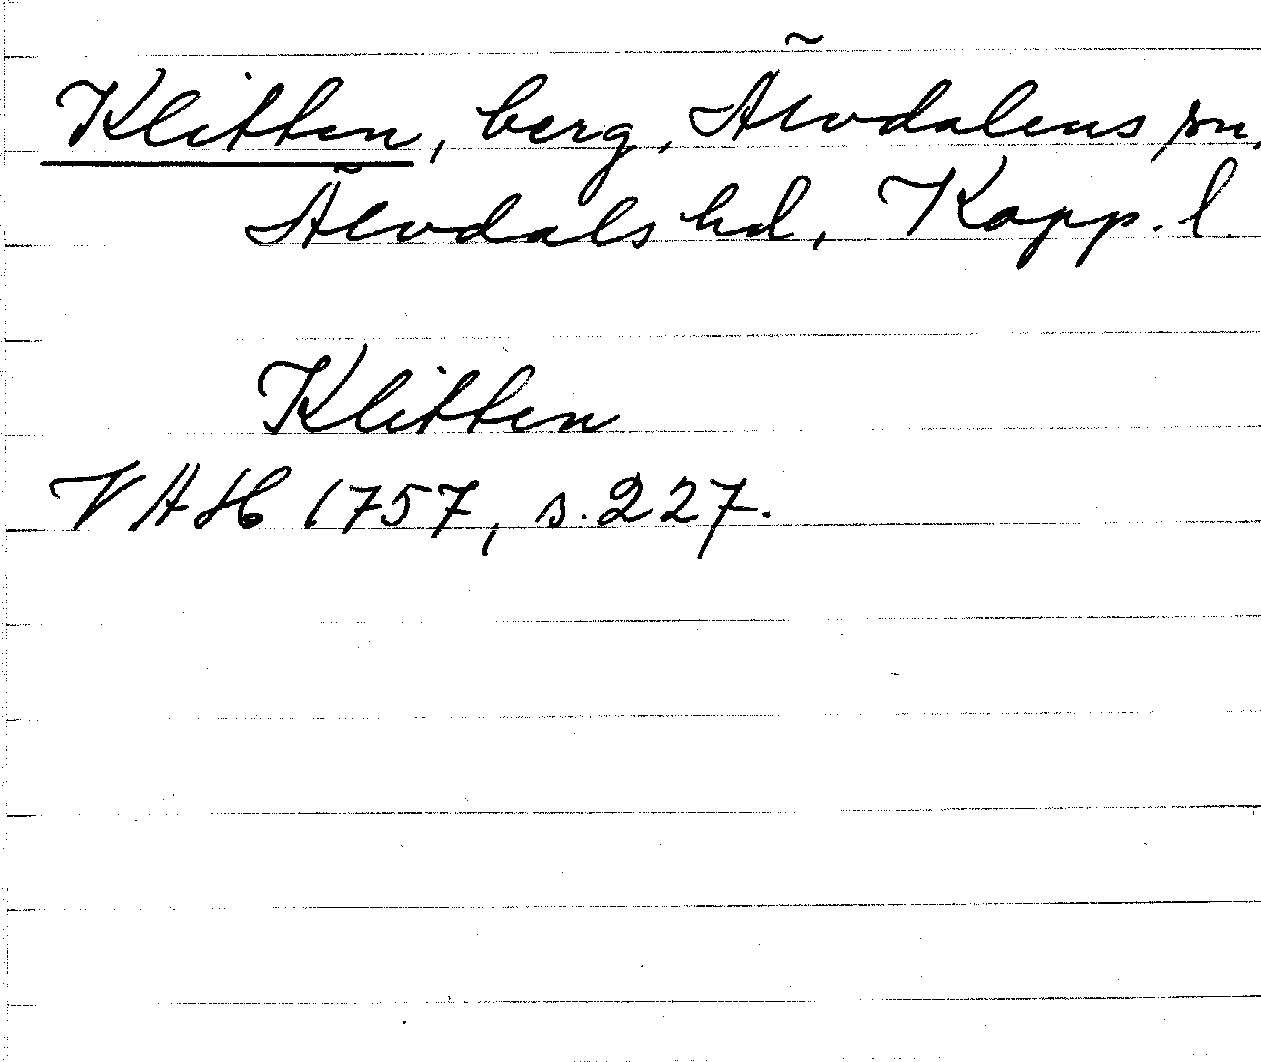 Klitten, berg, Älvdalens sn.
Älvdals hd, Kopp. l.
Klitten
VAH 1757, s. 227.